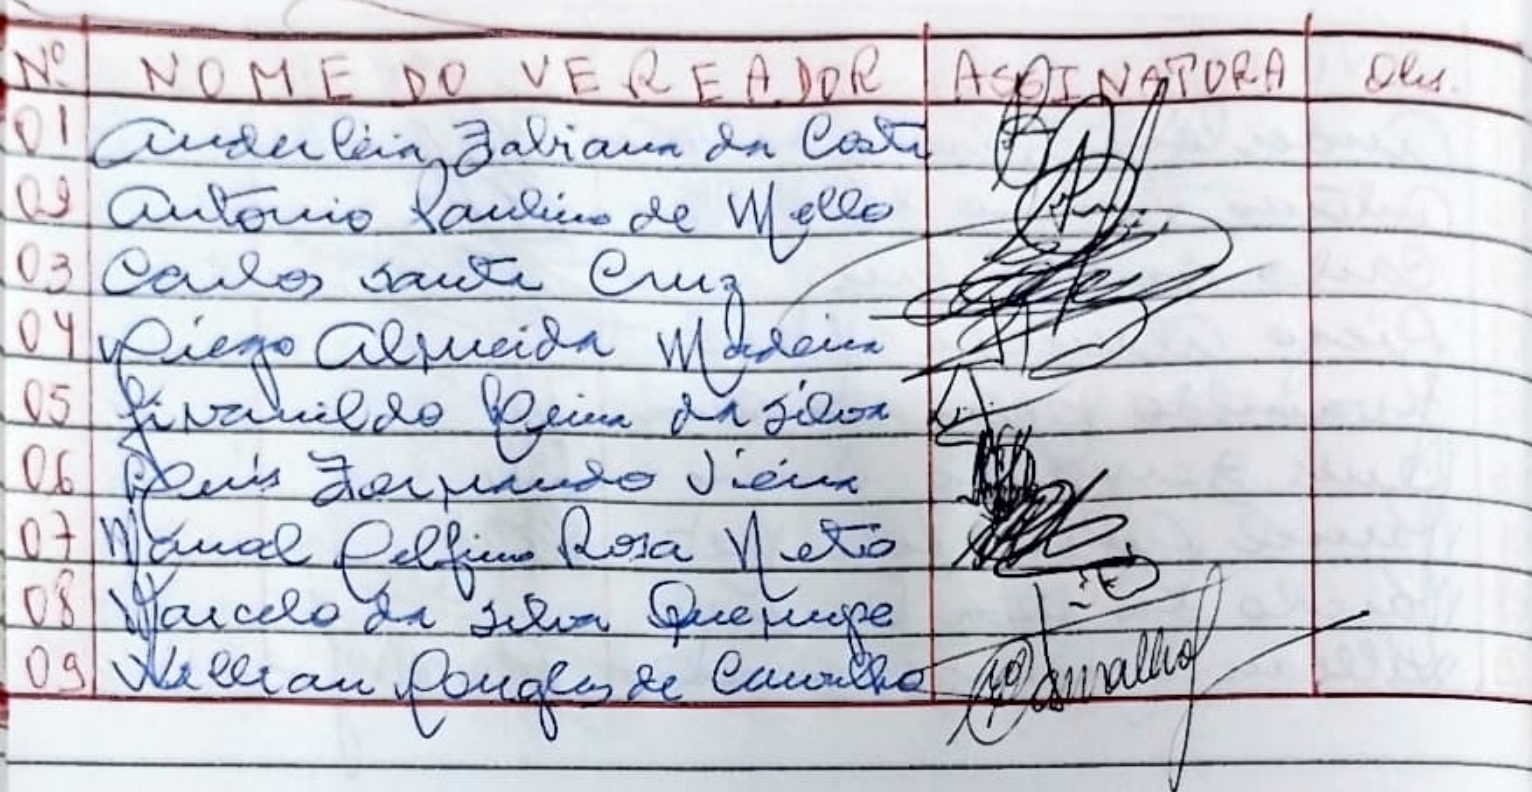 Nº NOME DO VEREADOR ASSINATURA Obs.
01 Anderleia Fabiana da Costa
02 Antonio Paulino de Mello
03 Carlos Santa Cruz
04 Diego Almeida Madeira
05 da Silva
06 Fernando Vieira
07 Manoal Delfino Rosa Neto
08 Marcelo da Silva
09 Willian Douglas de Carvalho Carvalho